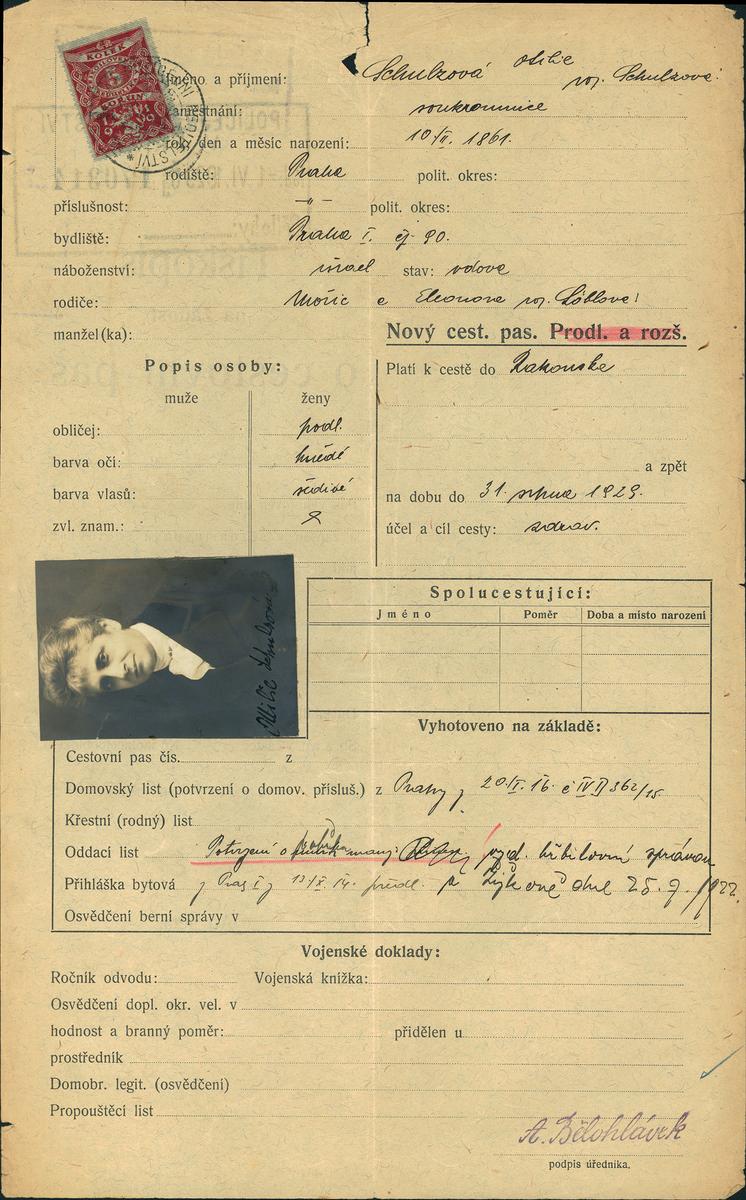 KOLEK
5
KORUN
Jméno a příjmení: Schulzová Otilie roz. Schulzová
zaměstnání: soukromnice
rok, den a měsíc narození: 10/II. 1861.
rodiště: Praha polit. okres:
příslušnost: -"- polit. okres:
bydliště: Praha I. čp. 90.
náboženství: israel stav: vdova
rodiče: Mořic a Eleonora roz. Löblová
manžel(ka):
Nový cest. pas. Prodl. a rozš.
Popis osoby:
muže ženy
obličej: podl.
barva očí: hnědé
barva vlasů: šedivé
zvl. znam.:
Platí k cestě do Rakouska
a zpět
na dobu do 31. srpna 1929.
účel a cíl cesty: zdrav.
Otilie Schulzová
Spolucestující:
Jméno Poměr Doba a místo narození
Vyhotoveno na základě:
Cestovní pas čís. z
Domovský list (potvrzení o domov. přísluš.) z Prahy z 20/I. 16. č IV
Křestní (rodný) list
Oddací list Potvrzení o pohřbu vyd. hřbitovní správou
Přihláška bytová z Prag I z 13/X. 14. předl. dne 25. 9. 1922.
Osvědčení berní správy v
Vojenské doklady:
Ročník odvodu: Vojenská knížka:
Osvědčení dopl. okr. vel. v
hodnost a branný poměr: přidělen u
prostředník
Domobr. legit. (osvědčení)
Propouštěcí list
A. Bělohlávek
podpis úředníka.